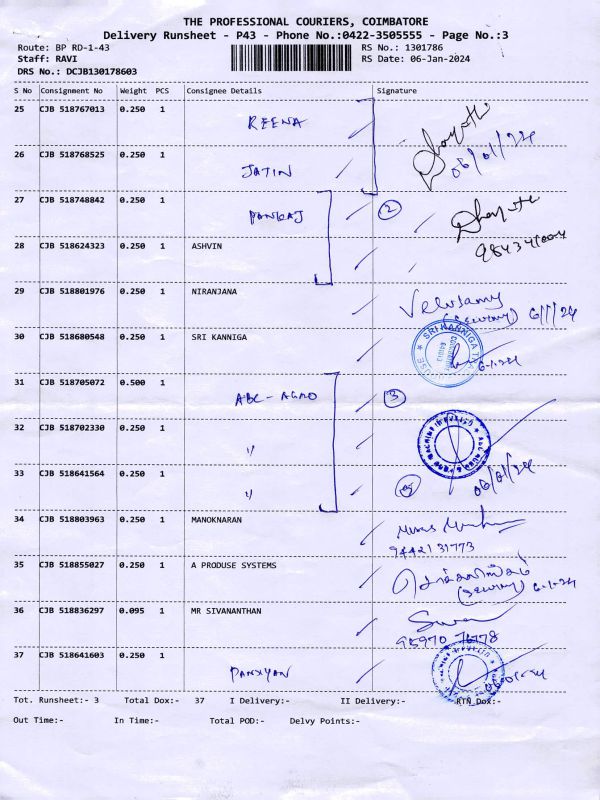 THE PROFESSIONAL COURIERS, COIMBATORE
Delivery Runsheet - P43 - Phone No.:0422-3505555 - Page No.:3
Route: BP RD-1-43 RS No.: 1301786
Staff: RAVI RS Date: 06-Jan-2024
DRS No.: DCJB130178603
S No Consignment No Weight PCS Consignee Details Signature
25 CJB 518767013 0.250 1 REENA
06/01/24
26 CJB 518768525 0.250 1 JATIN
27 CJB 518748842 0.250 1 PANKAJ 2
28 CJB 518624323 0.250 1 ASHVIN
29 CJB 518801976 0.250 1 NIRANJANA Velusamy
(Security) 6/1/24
30 CJB 518680548 0.250 1 SRI KANNIGA SRI KANNIGA
6-1-24
31 CJB 518705072 0.500 1 ABC-AGRO 3
32 CJB 518702330 0.250 1 "
33 CJB 518641564 0.250 1 " 06/01/24
34 CJB 518803963 0.250 1 MANOKNARAN
9442131773
35 CJB 518855027 0.250 1 A PRODUSE SYSTEMS
(Security) 6-1-24
36 CJB 518836297 0.095 1 MR SIVANANTHAN
95970 76778
37 CJB 518641603 0.250 1
Tot. Runsheet:- 3 Total Dox:- 37 I Delivery:- II Delivery:- RTN_Dox:-
Out Time:- In Time:- Total POD:- Delvy Points:-